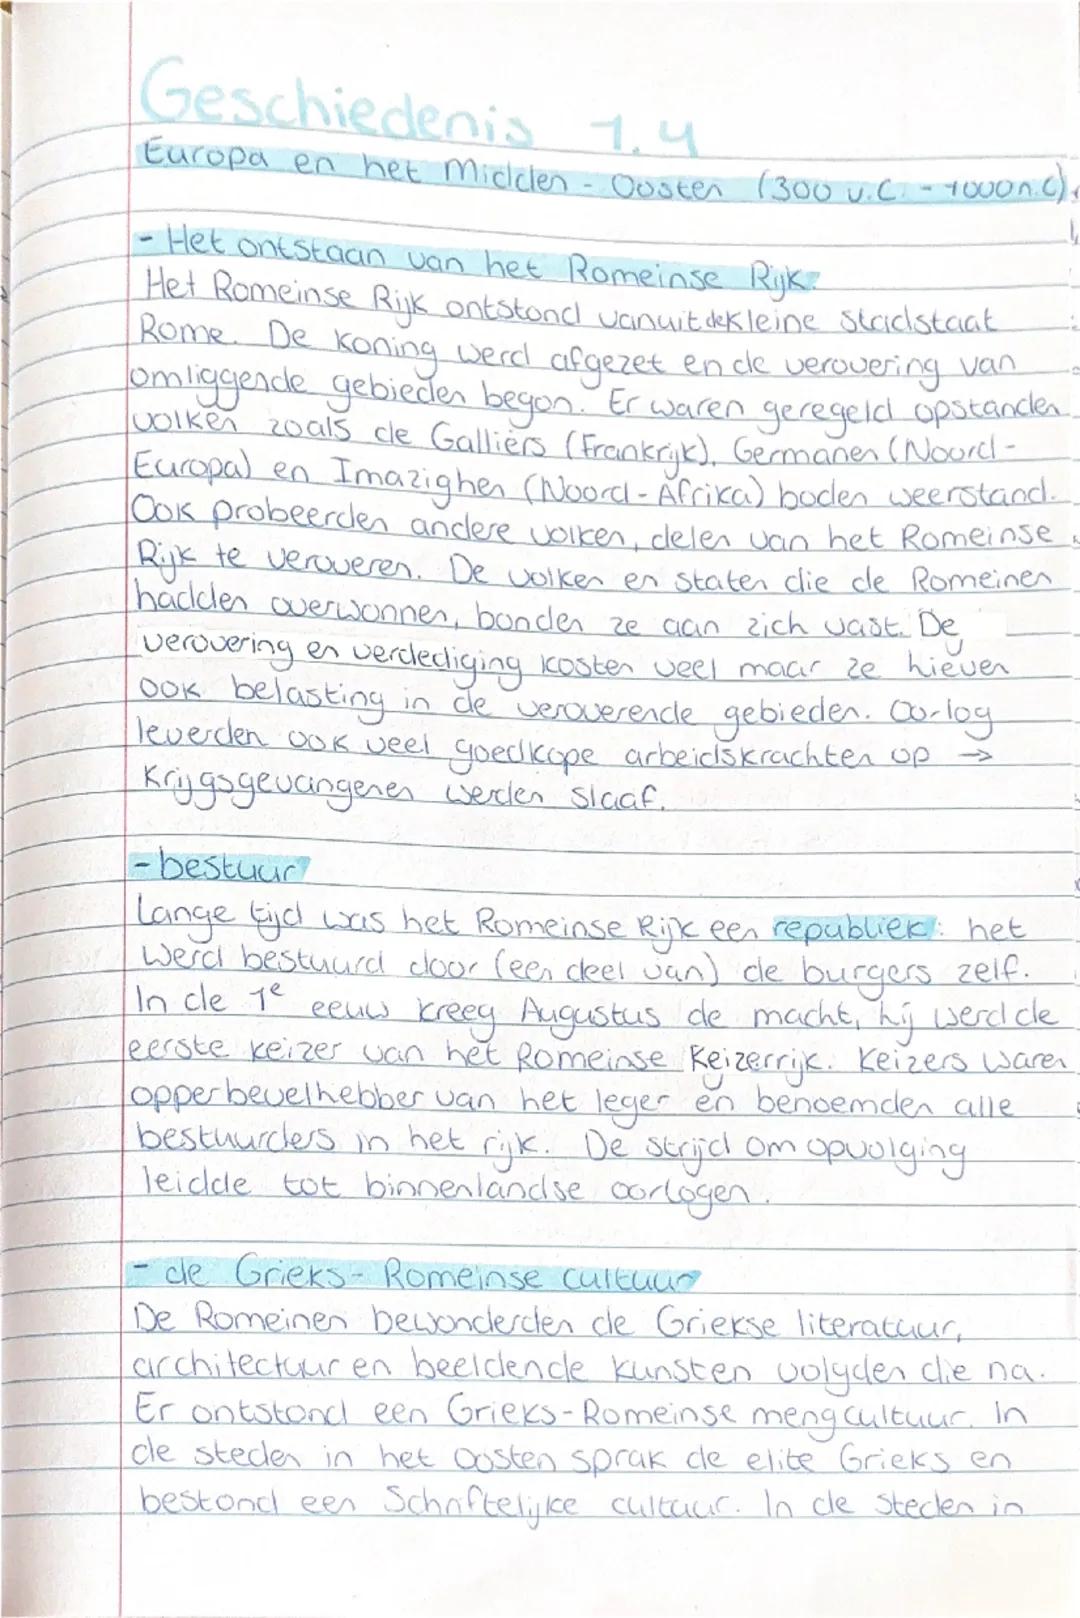 Geschiedenis 1.4
Europa en het Midden - Oosten (300 v.C. - 1000 n.C)
- Het ontstaan van het Romeinse Rijk
Het Romeinse Rijk ontstond vanuit de kleine stadstaat
Rome. De koning werd afgezet en de verovering van
omliggende gebieden begon. Er waren geregeld opstanden
volken zoals de Galliërs (Frankrijk), Germanen (Noord-
Europa) en Imazighen (Noord-Afrika) boden weerstand.
Ook probeerden andere volken, delen van het Romeinse
Rijk te veroveren. De volken en staten die de Romeinen
hadden overwonnen, bonden ze aan zich vast. De
verovering en verdediging kosten veel maar ze hieven
ook belasting in de veroverende gebieden. Oorlog
leverden ook veel goedkope arbeidskrachten op →
Krijgsgevangenen werden slaaf.
- bestuur
Lange tijd was het Romeinse Rijk een republiek: het
werd bestuurd door (een deel van) de burgers zelf.
In de 1e eeuw kreeg Augustus de macht, hij werd de
eerste keizer van het Romeinse Keizerrijk. Keizers waren
opperbevelhebber van het leger en benoemden alle
bestuurders in het rijk. De strijd om opvolging
leidde tot binnenlandse oorlogen.
- de Grieks- Romeinse cultuur
De Romeinen bewonderden de Griekse literatuur,
architectuur en beeldende kunsten volgden die na.
Er ontstond een Grieks-Romeinse mengcultuur. In
de steden in het oosten sprak de elite Grieks en
bestond een Schriftelijke cultuur. In de steden in